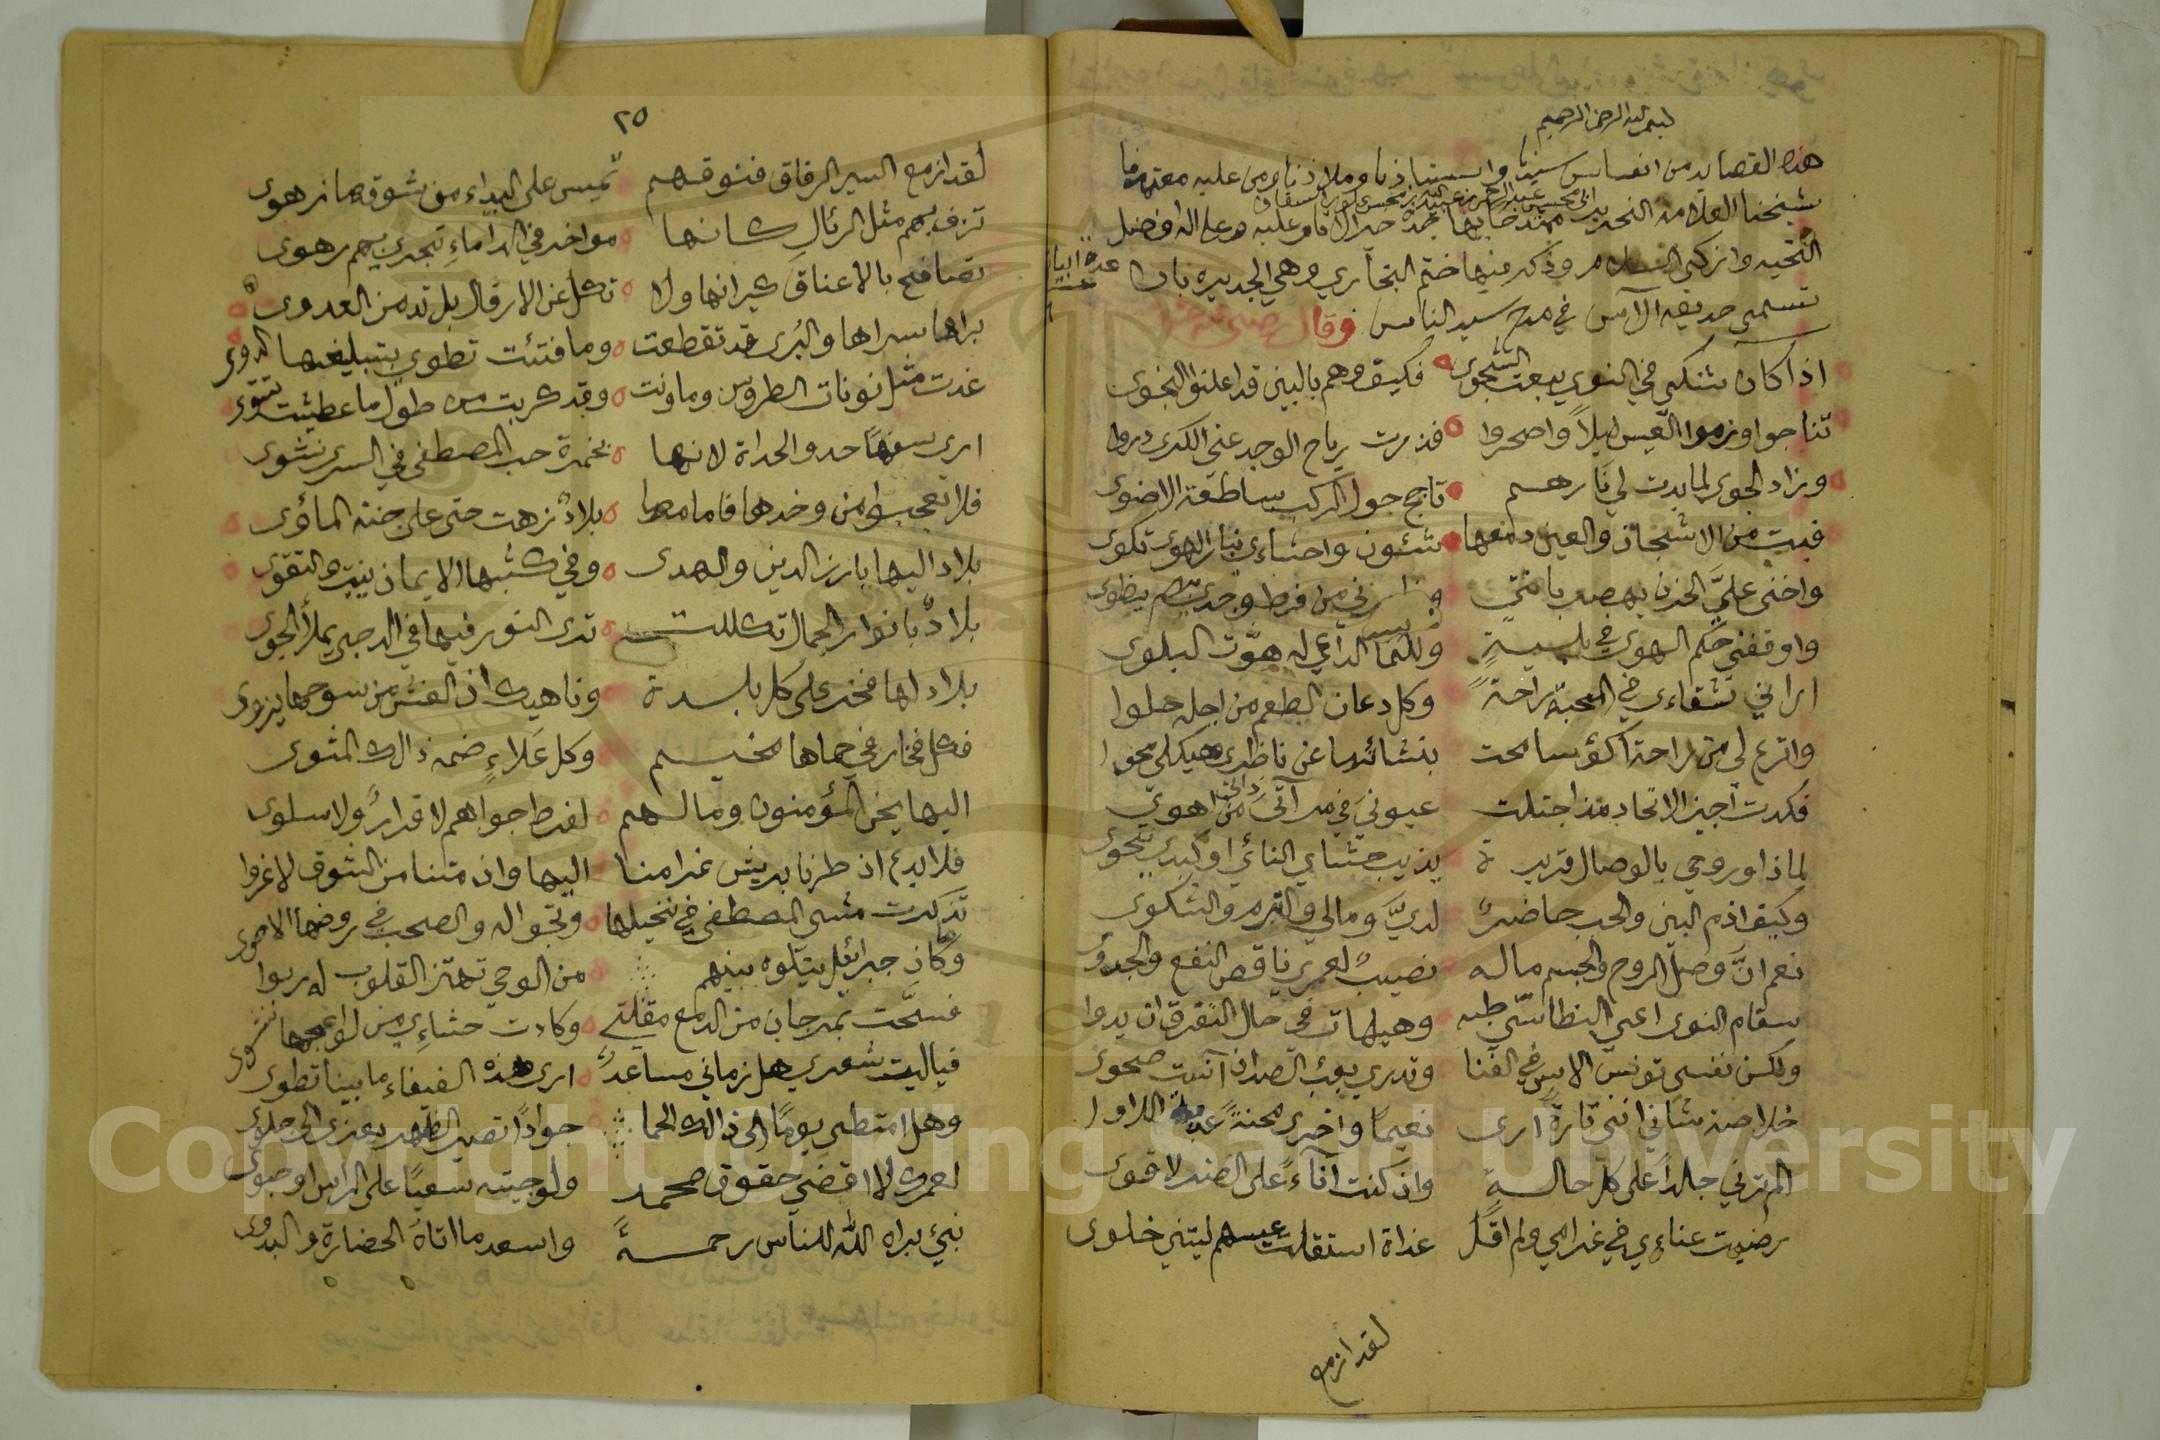 بسم الله الرحمن الرحيم
هذه القصايد من انفاس سيدنا واستاذنا وملاذنا ومن عليه معتمدنا
شيخنا العلامة النحرير
التحيه وازكى السلام وذكر فيها ختم البخاري وهي الجديره بان
تسمى حديقة الآس في مدح سيد الناس وقال رضي الله عنه
اذا كان شكي في النوى يبعث الشجوى فكيف وهم بالبين قد اعلنوا النجوى
تناجوا وزموا العيس ليلاً واصحروا فذرت رياح الوجد عني الكرى ذروا
وزاد الجوى لما بدت لي نارهم تاجج حول الركب ساطعة الاضوى
فبت من الاشجان والعين دمعها شئون واحشاءي بنار الهوى تكوى
واخنى عليَّ الحزن يهصر بامتي من فرط وجدي بهم يطوى
واوقفني حكم الهوى في بليةٍ الداعي له هوّنت البلوى
اراني شقاءي في المحبة راحةً وكل دعان الطعم من اجله حلوا
واترع لي من راحة اكؤسا محت بنشأتها عن ناظري هيكلي محوا
فكدت اجيز الاتحاد مذ اجتلت عيوني في مرآتي من اهوى
لماذا وروحي بالوصال قريرة يذيب حشاي النائي او كبدي تجوى
وكيف اذم البين والحب حاضرٌ لديَّ ومالي والتبرم والشكوى
نعم انَّ وصل الروح والجسم ماله نصيبٌ لعمري ناقص النفع والجدوى
سقام النوى اعيى النطاسي طبه وهيهات في حال التفرق ان يدوا
ولكن نفسي تونس الانس في الفنا وتدري بعبئ الصد ان آنست صحوى
خلاصة شاني انني تارةً ارى نعيماً واخرى محنةً اللاوا
الم ترني جلداً على كل حالةٍ واذ كنت آناءً على الصد لا قوى
رضيت عناءي في غرامي ولم اقل غداة استقلت عيسهم ليتني خلوى
لقد ازمع
٢٥
لقد ازمع السير الرفاق فنوقهم تميس على البيداء من شوقها زهوى
تزف بهم مثل الرئال كانها مواخر في الداماءِ تجري بهم رهوى
تصافح بالاعناق كيرانها ولا تكل عن الارقال بل تدمن العدوى
براها سراها والبُرى قد تقطعت وما فتئت تطوي بتبليغها الدوى
غدت مثل نونات الطروس وما ونت وقد كربت من طول ما عطشت تتوى
ارى سفهاً حدو الحداة لانها بخمرة حب المصطفى في السرى نشوى
فلا تعجبوا من وخدها فامامها بلادٌ زهت حتى على جنة المأوى
بلاد اليها يارز الدين والهدى وفي كثبها الايمان ينبت والتقوى
بلادٌ بانوار الجمال تكللت ترى النور فيها في الدجى يملأ الجوى
بلاد لها فخر على كل بلدة وناهيك ان الفتن من سوحها يزوى
فكل فخار في حماها مخيم وكل عَلاءٍ ضمه ذالك المثوى
اليها يحن المؤمنون وما لهم لفرط جواهم لا قرارٌ ولا سلوى
فلا بدع ان طرنا بريش غرامنا اليها وان متنا من الشوق لا غروا
تذكرت مشي المصطفى في نخيلها وتجواله والصحب في روضها الاحوى
وكان جبرائيل يتلوه بينهم من الوحي تهتز القلوب له ربوا
فسحَّت بمرجان من الدمع مقلتي وكادت حشاءي من لواعجها تشوى
فياليت شعري هل زماني مساعدٌ ارى هذه الفيفاء ما بيننا تطوى
وهل امتطي يوماً الى ذالك الحما جواداً
لعمرك لا اقضي حقوق محمد ولو جئته سعياً على الراس او حبوى
نبيٌ براه الله للناس رحمةً واسعد ما اتاه الحضارة والبدوى
Copyright © King Saud University